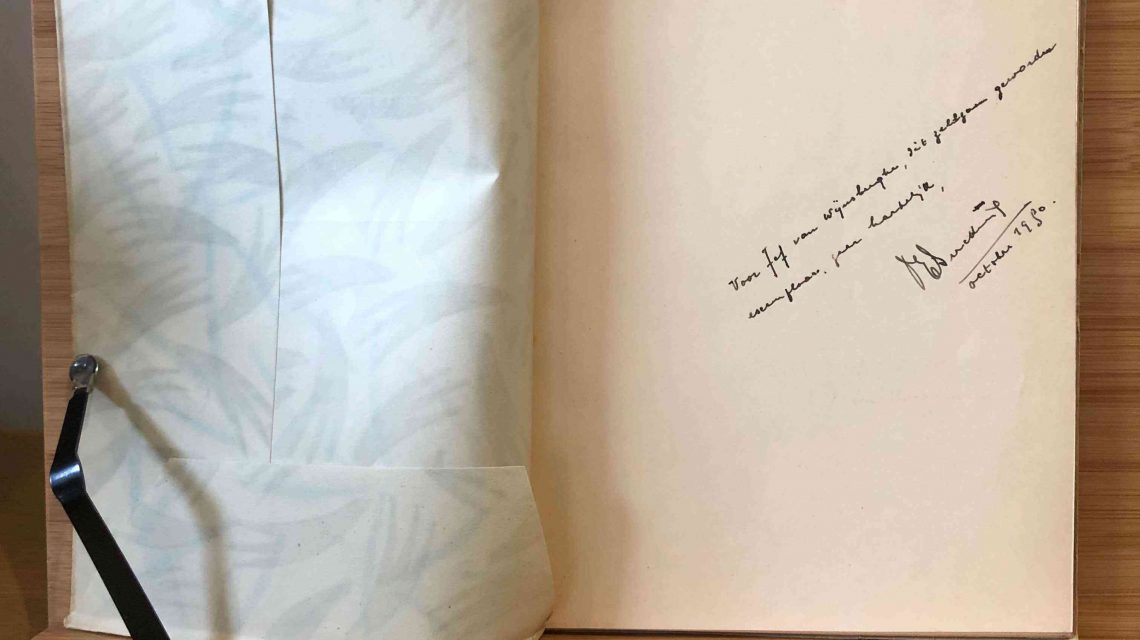 Voor Jef van Wijnsberghe, dit zeldzaam geworden
exemplaar, zeer hartelijk,
october 1950.